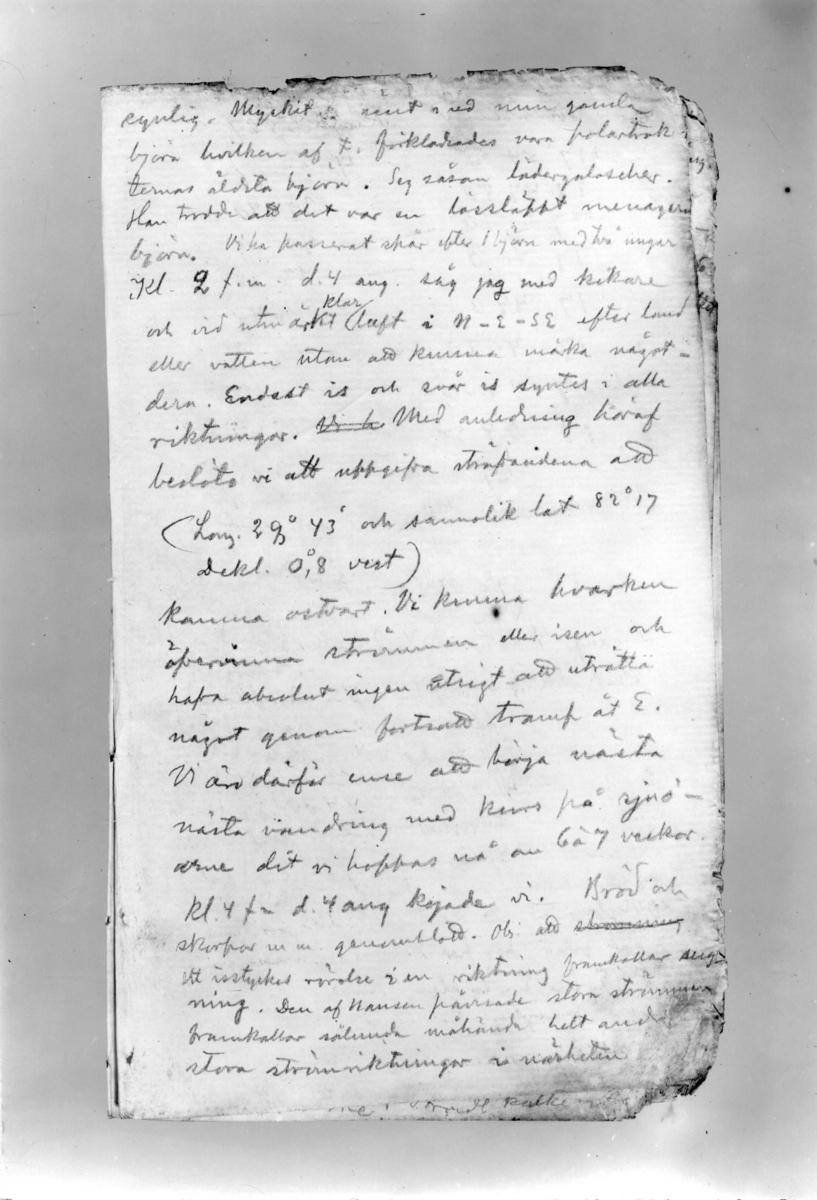 synlig. Myckit skönt med min gamla
björn hvilken af F. förklarades vara polartrak
ternas äldsta björn. Seg såsom lädergaloscher.
Han trodde att det var en lössläppt menageri
björn. Vi ha passerat spår efter 1 björn med två ungar
Kl. 2 f.m. d. 4 aug. såg jag med kikare
och vid utmärkt klar luft i N-E-SE efter land
eller vatten utan att kunna märka något-
dera. Endast is och svår is syntes i alla
riktningar. Vi h Med anledning häraf
beslöto vi att uppgifva sträfvandena att
(Long. 29° 43' och sannolik lat 82° 17
Dekl. 0°,8 vest)
komma ostvart. Vi kunna hvarken
öfvervinna strömmen eller isen och
hafva absolut ingen utsigt att uträtta
något genom fortsatt tramp åt E.
Vi äro därför ense att börja nästa
nästa vandring med kurs på sjuö-
arne dit vi hoppas nå om 6 à 7 veckor.
kl. 4 fm d. 4 aug kojade vi. Bröd och
skorpor m m genomblött. Obs att strömning
ett isstyckes rörelse i en riktning framkallar sug
ning. Den af Nansen påvisade stora strömmen
framkallar sålunda måhända helt andra
stora strömriktningar i närheten